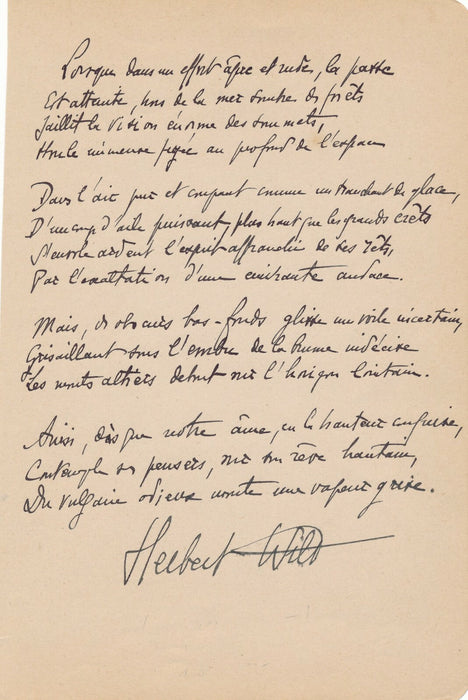 Lorsque dans un effort âpre et rude, la passe
Est atteinte, hors de la mer sombre des forêts
Jaillit la vision énorme des sommets,
Houle immense figée au profond de l'espace
Dans l'air pur et coupant comme un tranchant de glace,
D'un coup d'aile puissant, plus haut que les grands crêts
S'envole ardent l'esprit affranchi de ses rêts,
Par l'exaltation d'une enivrante audace.
Mais, des obscurs bas-fonds glisse un voile incertain,
Grisaillant sous l'ombre de la brume indécise
Les monts altiers debout sur l'horizon lointain.
Ainsi, dès que notre âme, en la hauteur conquise,
Contemple ses pensers, sur son rêve hautain,
Du vulgaire odieux monte une vapeur grise.
Herbert Wild